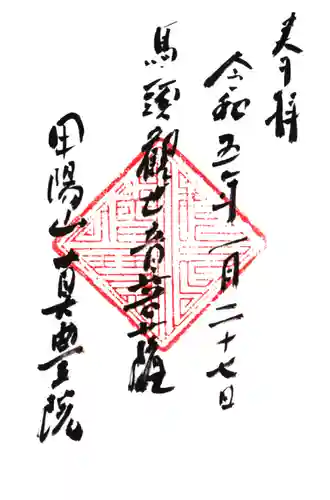 奉拝
令和五年一月二十七日
馬頭觀世音菩薩
甲陽山真豊院